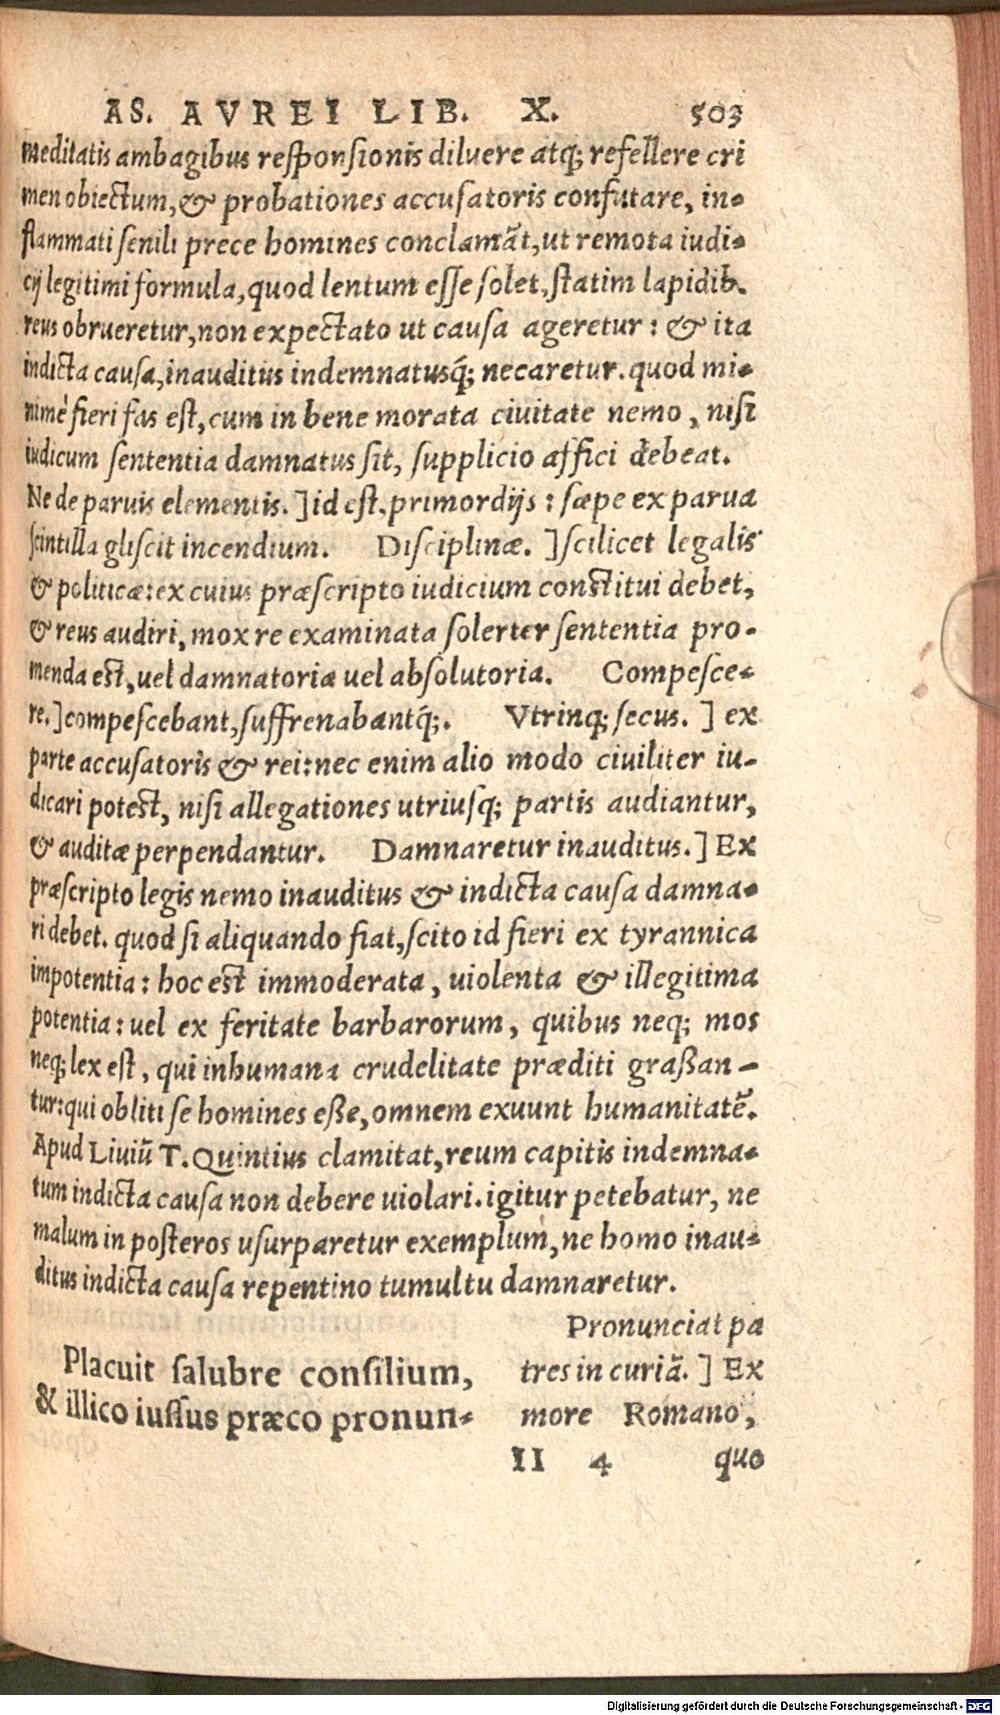 AS. AVREI LIB. X. 503
meditatis ambagibus responsionis diluere atq; refellere cri
men obiectum, & probationes accusatoris confutare, in-
flammati senili prece homines conclamãt, ut remota iudi-
cij legitimi formula, quod lentum esse solet, statim lapidib.
reus obrueretur, non expectato ut causa ageretur: & ita
indicta causa, inauditus indemnatusq́; necaretur. quod mi-
nimè fieri fas est, cum in bene morata ciuitate nemo, nisi
iudicum sententia damnatus sit, supplicio affici debeat.
Ne de paruis elementis. ] id est, primordijs: sæpe ex parua
scintilla gliscit incendium. Disciplinæ. ] scilicet legalis
& politicæ: ex cuius præscripto iudicium constitui debet,
& reus audiri, mox re examinata solerter sententia pro-
menda est, uel damnatoria uel absolutoria. Compesce-
re. ] compescebant, suffrenabantq́;. Vtrinq; secus. ] ex
parte accusatoris & rei: nec enim alio modo ciuiliter iu-
dicari potest, nisi allegationes utriusq; partis audiantur,
& auditæ perpendantur. Damnaretur inauditus. ] Ex
præscripto legis nemo inauditus & indicta causa damna-
ri debet. quod si aliquando fiat, scito id fieri ex tyrannica
impotentia: hoc est immoderata, uiolenta & illegitima
potentia: uel ex feritate barbarorum, quibus neq; mos
neq; lex est, qui inhumana crudelitate præditi graßan-
tur: qui obliti se homines eße, omnem exuunt humanitatẽ.
Apud Liuiũ T. Quintius clamitat, reum capitis indemna-
tum indicta causa non debere uiolari. igitur petebatur, ne
malum in posteros usurparetur exemplum, ne homo inau-
ditus indicta causa repentino tumultu damnaretur.
Placuit salubre consilium,
& illico iussus præco pronun-
Pronunciat pa
tres in curiã. ] Ex
more Romano,
II 4 quo
Digitalisierung gefördert durch die Deutsche Forschungsgemeinschaft - DFG